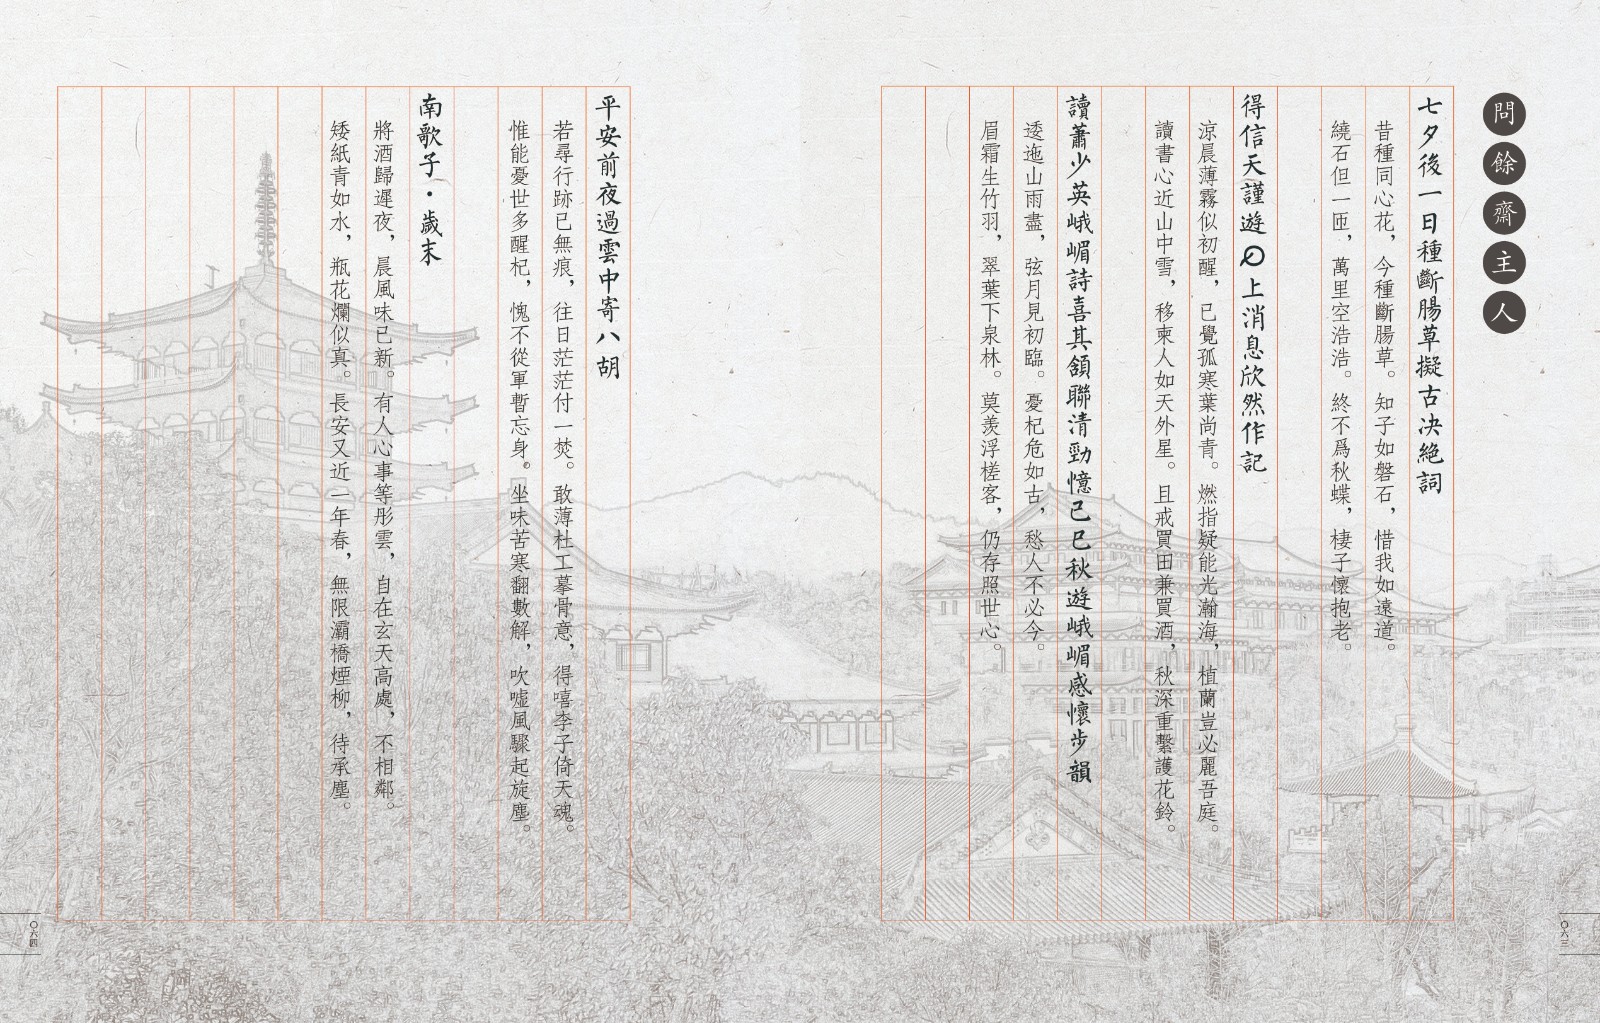 問餘齋主人
七夕後一日種斷腸草擬古決絕詞
昔種同心花，今種斷腸草。知子如磐石，惜我如遠道。
繞石但一匝，萬里空浩浩。終不爲秋蝶，棲子懷抱老。
得信天謹遊上消息欣然作記
涼晨薄霧似初醒，已覺孤寒葉尚青。燃指疑能光瀚海，植蘭豈必麗吾庭。
讀書心近山中雪，移柬人如天外星。且戒買田兼買酒，秋深重繫護花鈴。
讀蕭少英峨嵋詩喜其頷聯清勁憶己巳秋遊峨嵋感懷步韻
逶迤山雨盡，弦月見初臨。憂杞危如古，愁人不必今。
眉霜生竹羽，翠葉下泉林。莫羨浮槎客，仍存照世心。
〇六三
平安前夜過雲中寄八胡
若尋行跡已無痕，往日茫茫付一焚。敢薄杜工摹骨意，得嘻李子倚天魂。
惟能憂世多醒杞，愧不從軍暫忘身。坐味苦寒翻數解，吹噓風驟起旋塵。
南歌子·歲末
將酒歸遲夜，晨風味已新。有人心事等彤雲，自在玄天高處，不相鄰。
矮紙青如水，瓶花爛似真。長安又近一年春，無限灞橋煙柳，待承塵。
〇六四